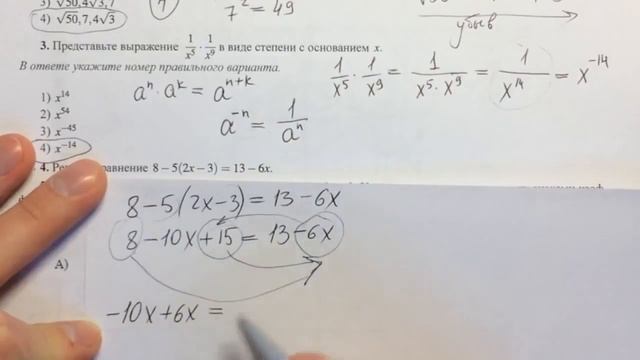 3) √50, 4√3, 7
4) √50, 7, 4√3
7² = 49
убыв
3. Представьте выражение 1/x⁵ · 1/x⁹ в виде степени с основанием x.
В ответе укажите номер правильного варианта.
1) x¹⁴
2) x⁵⁴
3) x⁻⁴⁵
4) x⁻¹⁴
aⁿ · aᵏ = aⁿ⁺ᵏ
a⁻ⁿ = 1/aⁿ
1/x⁵ · 1/x⁹ = 1/(x⁵ · x⁹) = 1/x¹⁴ = x⁻¹⁴
4. авнение 8 – 5(2x – 3) = 13 – 6x.
8 – 5(2x – 3) = 13 – 6x
8 – 10x + 15 = 13 – 6x
А)
–10x + 6x =